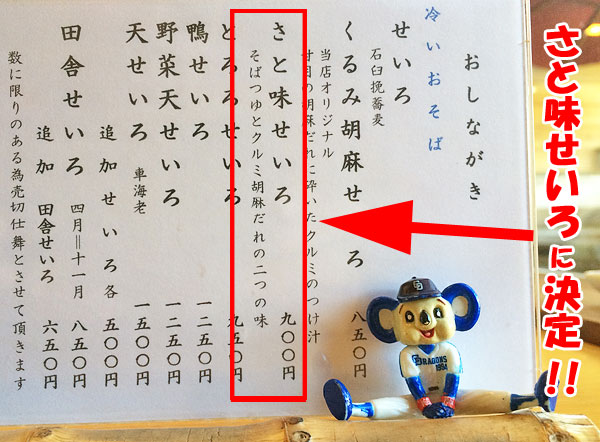 さと味せいろに決定!!
おしながき
冷いおそば
せいろ
石臼挽蕎麦
くるみ胡麻せ ろ 八五〇円
当店オリジナル
甘目の胡麻だれに砕いたクルミのつけ汁
さと味せいろ 九〇〇円
そばつゆとクルミ胡麻だれの二つの味
とろろせいろ 九五〇円
鴨せいろ 一二五〇円
野菜天せいろ 一二五〇円
天せいろ 車海老 一五〇〇円
追加せいろ各 五〇〇円
田舎せいろ 四月〓十一月 八五〇円
追加 田舎せいろ 六五〇円
数に限りのある為売切仕舞とさせて頂きます
DRAGONS
1994